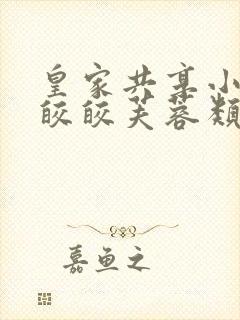 皇家共享小
皎皎芙蓉颓
嘉鱼之